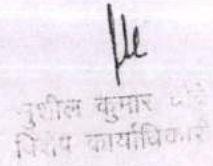 सुशील कुमार
विशेष कार्याधिकारी